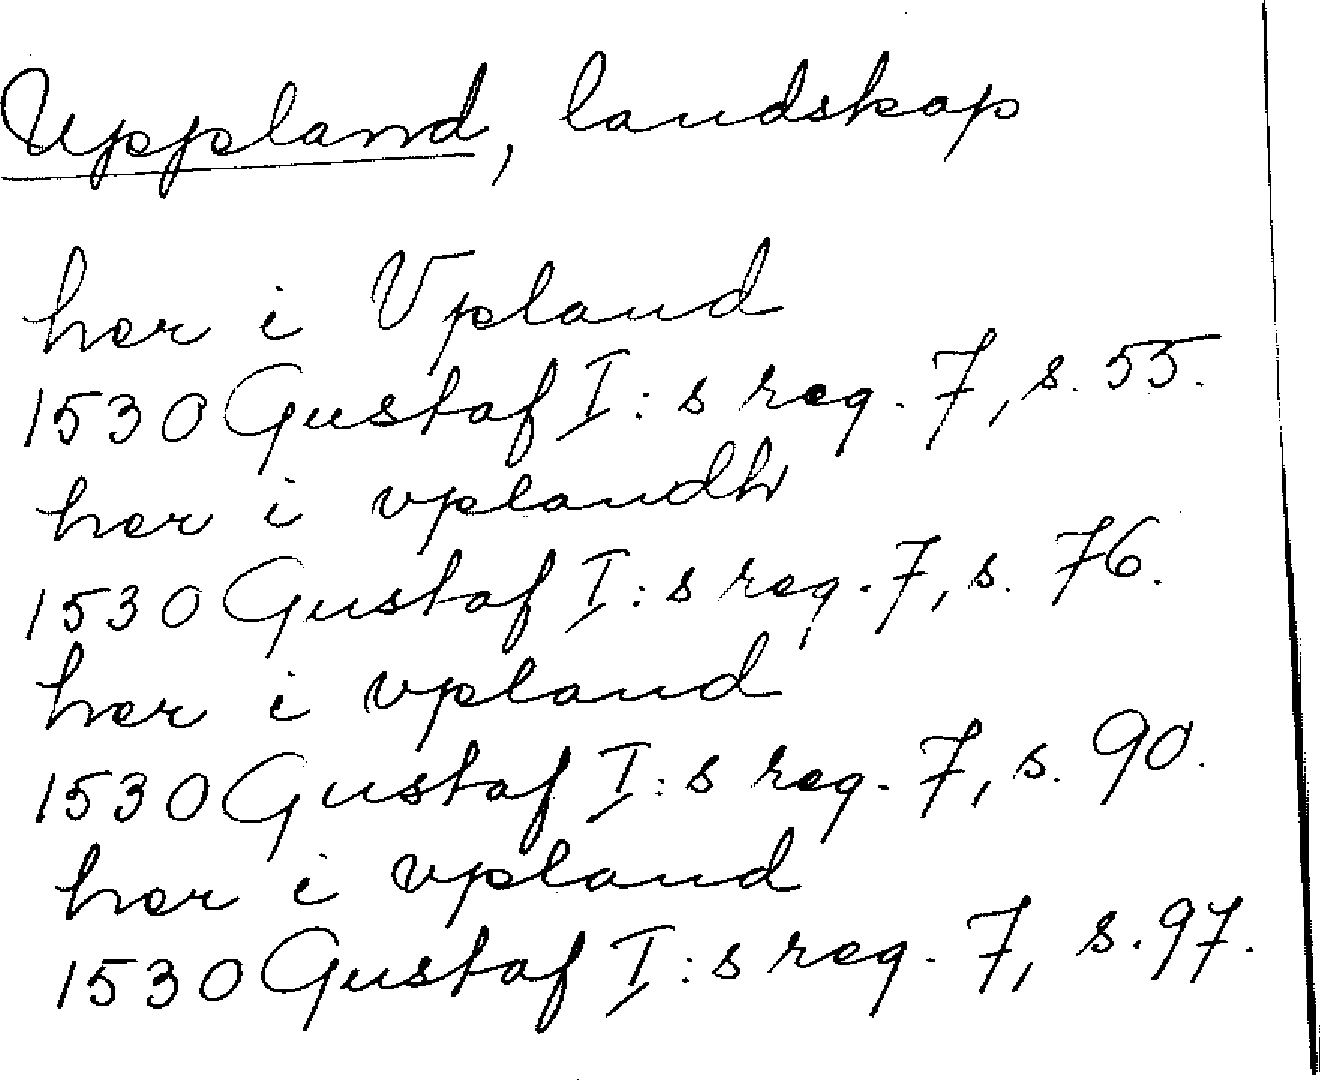 Uppland, landskap
her i Vpland
1530 Gustaf I:s reg. 7, s. 55.
her i vplandh
1530 Gustaf I:s reg. 7, s. 76.
her i vpland
1530 Gustaf I:s reg. 7, s. 90.
her i vpland
1530 Gustaf I:s reg. 7, s. 97.